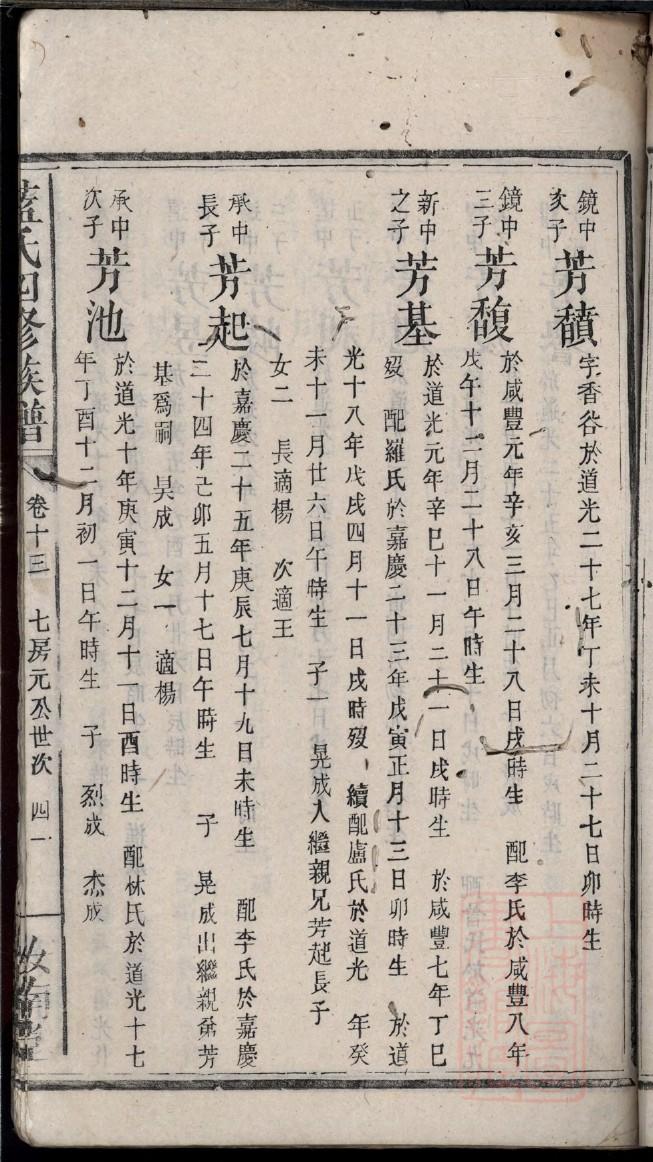 鏡中次子 芳積 字香谷於道光二十七年丁未十月二十七日卯時生
鏡中三子 芳馥 於咸豐元年辛亥三月二十八日戌時生 配李氏於咸豐八年
戊午十二月二十八日午時生
新中之子 芳基 於道光元年辛巳十一月二十一日戌時生 於咸豐七年丁巳
歿 配羅氏於嘉慶二十三年戊寅正月十三日卯時生 於道
光十八年戊戌四月十一日戌時歿 續配盧氏於道光 年癸
未十一月廿六日午時生 子一 晃成入繼親兄芳起長子
女二 長適楊 次適王
承中長子 芳起 於嘉慶二十五年庚辰七月十九日未時生 配李氏於嘉慶
二十四年己卯五月十七日午時生 子 晃成出繼親弟芳
基爲嗣 昊成 女一 適楊
承中次子 芳池 於道光十年庚寅十二月十一日酉時生 配林氏於道光十七
年丁酉十二月初一日午時生 子 烈成 杰成
藍氏四修族譜 卷十三 七房元公世次 四一 汝南堂